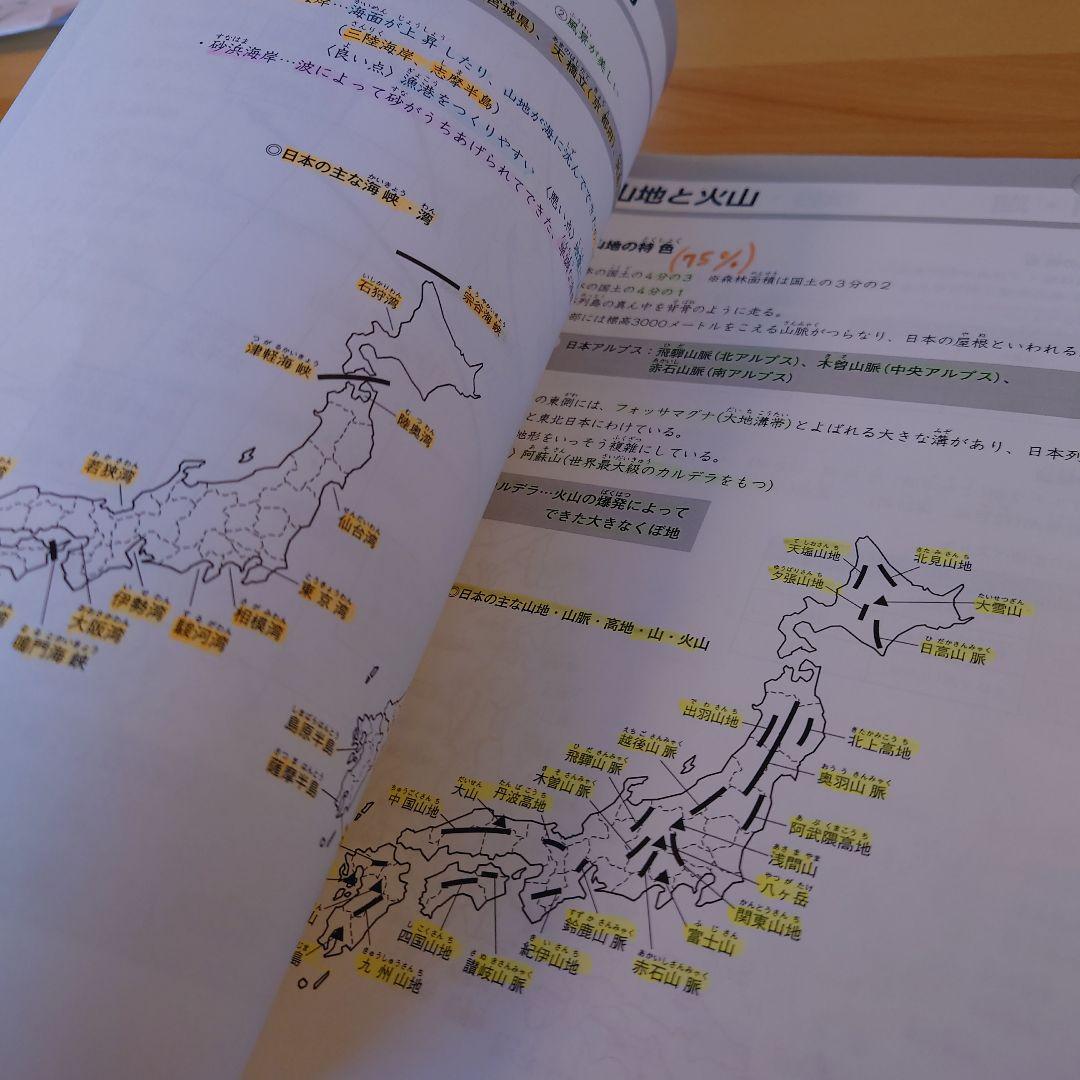 宮城県)、天橋立(京都府)
②風景が美しい
岸…海面が上昇したり、山地が海に沈んでできた
(三陸海岸、志摩半島)
〈良い点〉漁港をつくりやすい 〈悪い点〉
・砂浜海岸…波によって砂がうちあげられてできた、
◎日本の主な海峡・湾
石狩湾
宗谷海峡
津軽海峡
陸奥湾
若狭湾
仙台湾
東京湾
相模湾
駿河湾
伊勢湾
大阪湾
鳴門海峡
島原半島
薩摩半島
山地と火山
山地の特色
(75%)
本の国土の4分の3 ※森林面積は国土の3分の2
本の国土の4分の1
列島の真ん中を背骨のように走る。
部には標高3000メートルをこえる山脈がつらなり、日本の屋根といわれる
日本アルプス:飛驒山脈(北アルプス)、木曽山脈(中央アルプス)、
赤石山脈(南アルプス)
の東側には、フォッサマグナ(大地溝帯)とよばれる大きな溝があり、日本列
と東北日本にわけている。
地形をいっそう複雑にしている。
〉阿蘇山(世界最大級のカルデラをもつ)
カルデラ…火山の爆発によって
できた大きなくぼ地
◎日本の主な山地・山脈・高地・山・火山
天塩山地
北見山地
夕張山地
大雪山
日高山脈
出羽山地
北上高地
越後山脈
奥羽山脈
飛驒山脈
木曽山脈
阿武隈高地
大山
丹波高地
中国山地
浅間山
八ヶ岳
関東山地
富士山
赤石山脈
鈴鹿山脈
紀伊山地
讃岐山脈
四国山地
九州山地
島